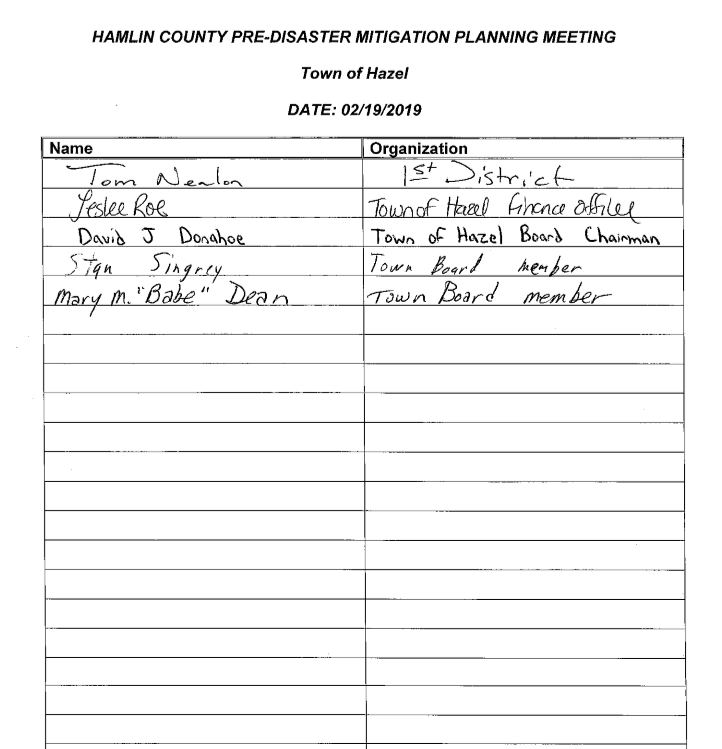 HAMLIN COUNTY PRE-DISASTER MITIGATION PLANNING MEETING
Town of Hazel
DATE: 02/19/2019
Name Organization
Tom Nealon 1st District
Leslee Roe Town of Hazel Finance Officer
David J Donahoe Town of Hazel Board Chairman
Stan Town Board member
Mary M. "Babe" Dean Town Board member